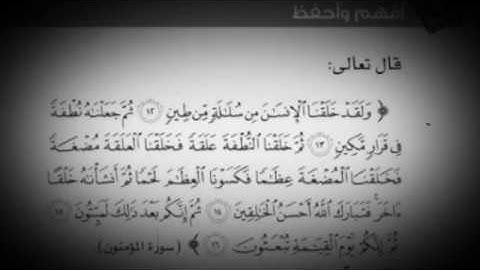 أفهم وأحفظ
قال تعالى:
﴿ وَلَقَدْ خَلَقْنَا ٱلْإِنسَٰنَ مِن سُلَٰلَةٍ مِّن طِينٍ ١٢ ثُمَّ جَعَلْنَٰهُ نُطْفَةً
فِى قَرَارٍ مَّكِينٍ ١٣ ثُمَّ خَلَقْنَا ٱلنُّطْفَةَ عَلَقَةً فَخَلَقْنَا ٱلْعَلَقَةَ مُضْغَةً
فَخَلَقْنَا ٱلْمُضْغَةَ عِظَٰمًا فَكَسَوْنَا ٱلْعِظَٰمَ لَحْمًا ثُمَّ أَنشَأْنَٰهُ خَلْقًا
ءَاخَرَ ۚ فَتَبَارَكَ ٱللَّهُ أَحْسَنُ ٱلْخَٰلِقِينَ ١٤ ثُمَّ إِنَّكُم بَعْدَ ذَٰلِكَ لَمَيِّتُونَ ١٥
ثُمَّ إِنَّكُمْ يَوْمَ ٱلْقِيَٰمَةِ تُبْعَثُونَ ١٦ ﴾ (سورة المؤمنون)